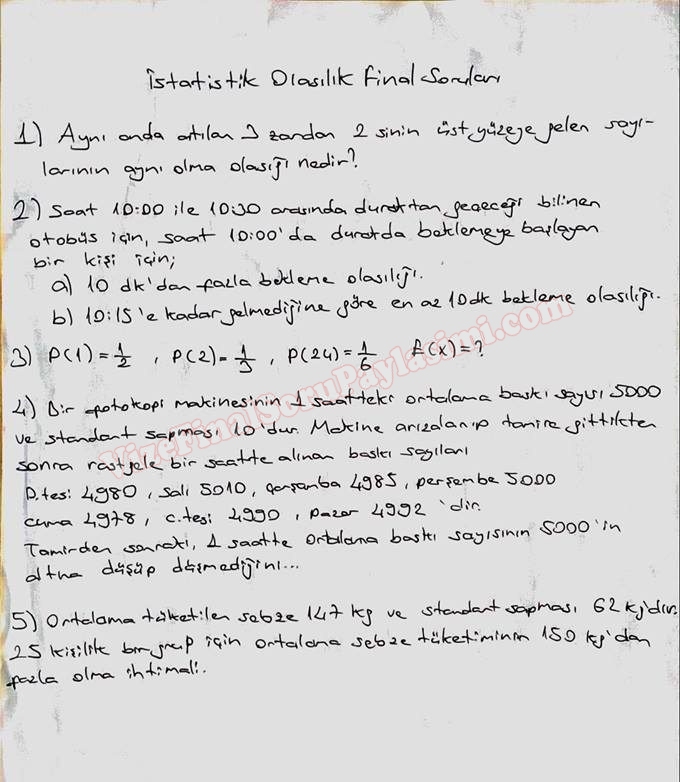 İstatistik Olasılık Final Soruları
1) Aynı anda atılan 3 zardan 2 sinin üst yüzeye gelen sayı-
larının aynı olma olasığı nedir?
2) Saat 10:00 ile 10:30 arasında duraktan geçeceği bilinen
otobüs için, saat 10:00'da durakta beklemeye başlayan
bir kişi için;
a) 10 dk'dan fazla bekleme olasılığı.
b) 10:15'e kadar gelmediğine göre en az 10dk bekleme olasılığı.
3) P(1)=1/2 , P(2)=1/3 , P(24)=1/6 f(x)=?
4) Bir fotokopi makinesinin 1 saatteki ortalama baskı sayısı 5000
ve standart sapması 10'dur. Makine arızalanıp tamire gittikten
sonra rastgele bir saatte alınan baskı sayıları
P.tesi 4980, salı 5010, çarşamba 4985, perşembe 5000
cuma 4978, c.tesi 4990, pazar 4992 'dir.
Tamirden sonraki, 1 saatte ortalama baskı sayısının 5000'in
altına düşüp düşmediğini...
5) Ortalama tüketilen sebze 147 kg ve standart sapması 62 kg'dır.
25 kişilik bir grup için ortalama sebze tüketiminin 150 kg'dan
fazla olma ihtimali.
VizeFinalSoruPaylasimi.com